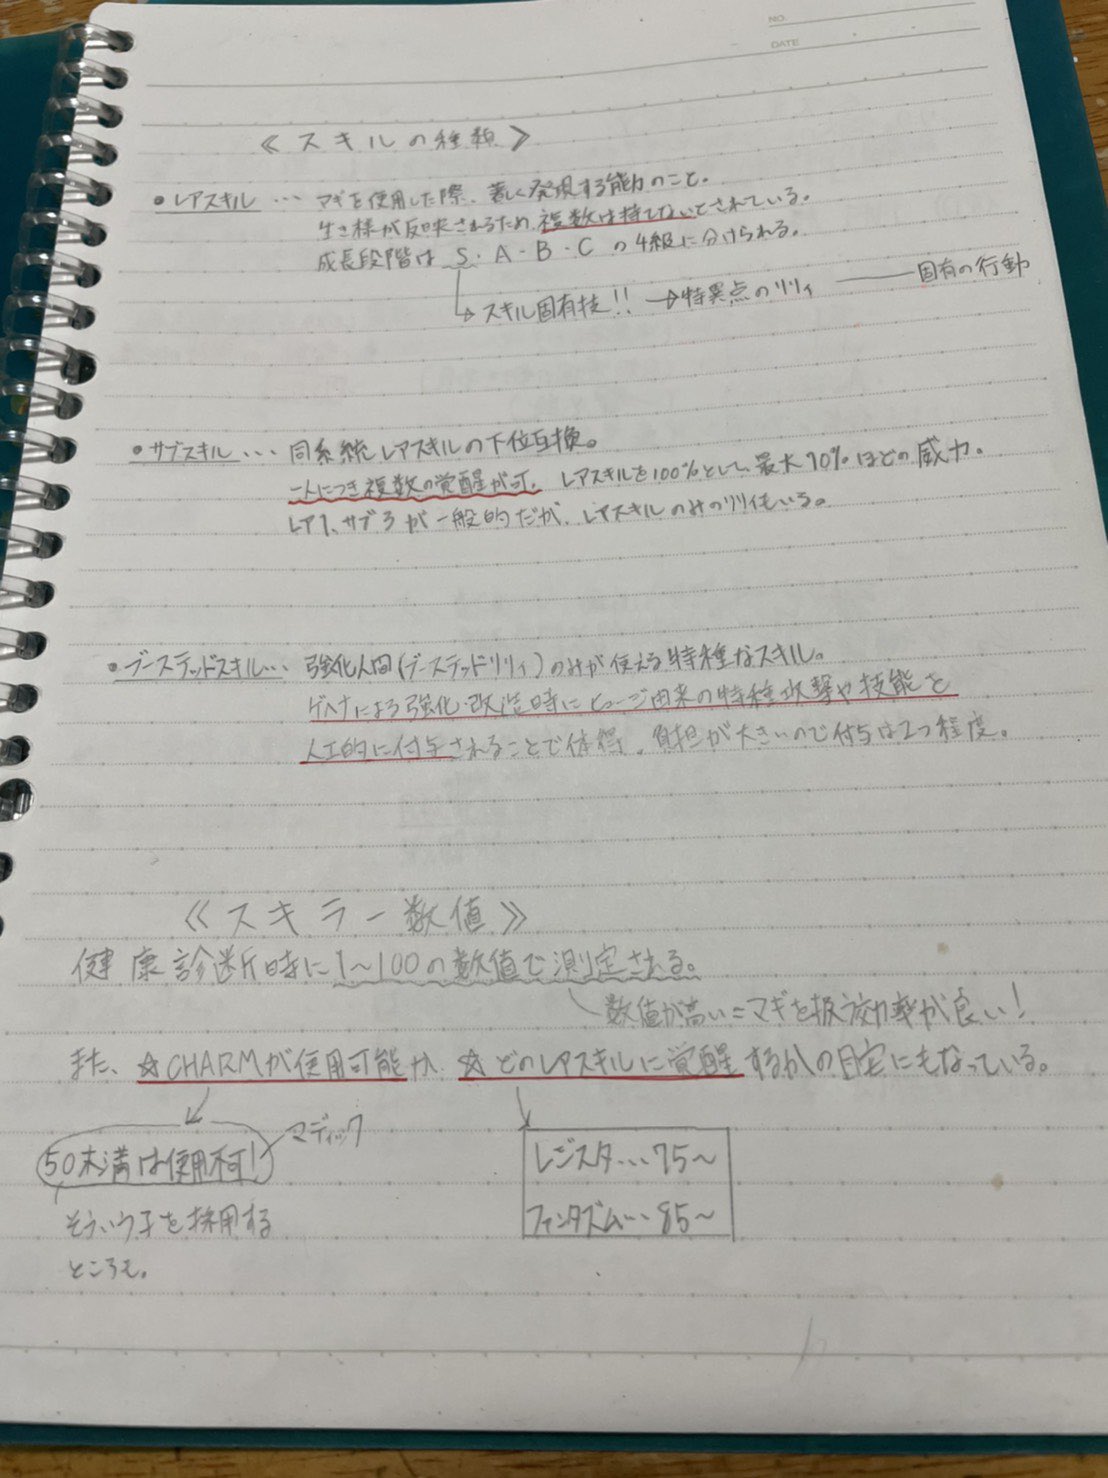 NO.
DATE
《スキルの種類》
・レアスキル … マギを使用した際、著しく発現する能力のこと。
生き様が反映されるため、複数は持てないとされている。
成長段階は S・A・B・C の4級に分けられる。
↳スキル固有技!! →特異点のリリィ ― 固有の行動
・サブスキル … 同系統レアスキルの下位互換。
一人につき複数の覚醒が可。 レアスキルを100%として、最大70%ほどの威力。
レア1、サブ3が一般的だが、レアスキルのみのリリィもいる。
・ブーステッドスキル… 強化人間(ブーステッドリリィ)のみが使える特種なスキル。
ゲヘナによる強化・改造時にヒュージ由来の特種攻撃や技能を
人工的に付与されることで体得。負担が大きいので付与は2つ程度。
《スキラー数値》
健康診断時に1~100の数値で測定される。
数値が高い=マギを扱う効率が良い!
また、☆CHARMが使用可能か、☆どのレアスキルに覚醒するかの目安にもなっている。
マディック
50未満は使用不可!
そういう子を採用する
ところも。
レジスタ…75~
ファンタズム…85~